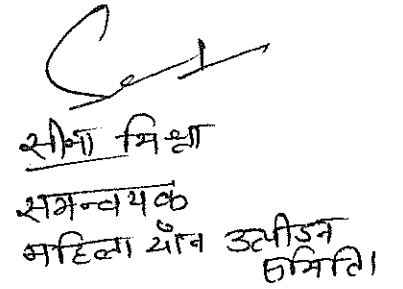 सीमा मिश्रा
समन्वयक
महिला यौन उत्पीडन
समिति।